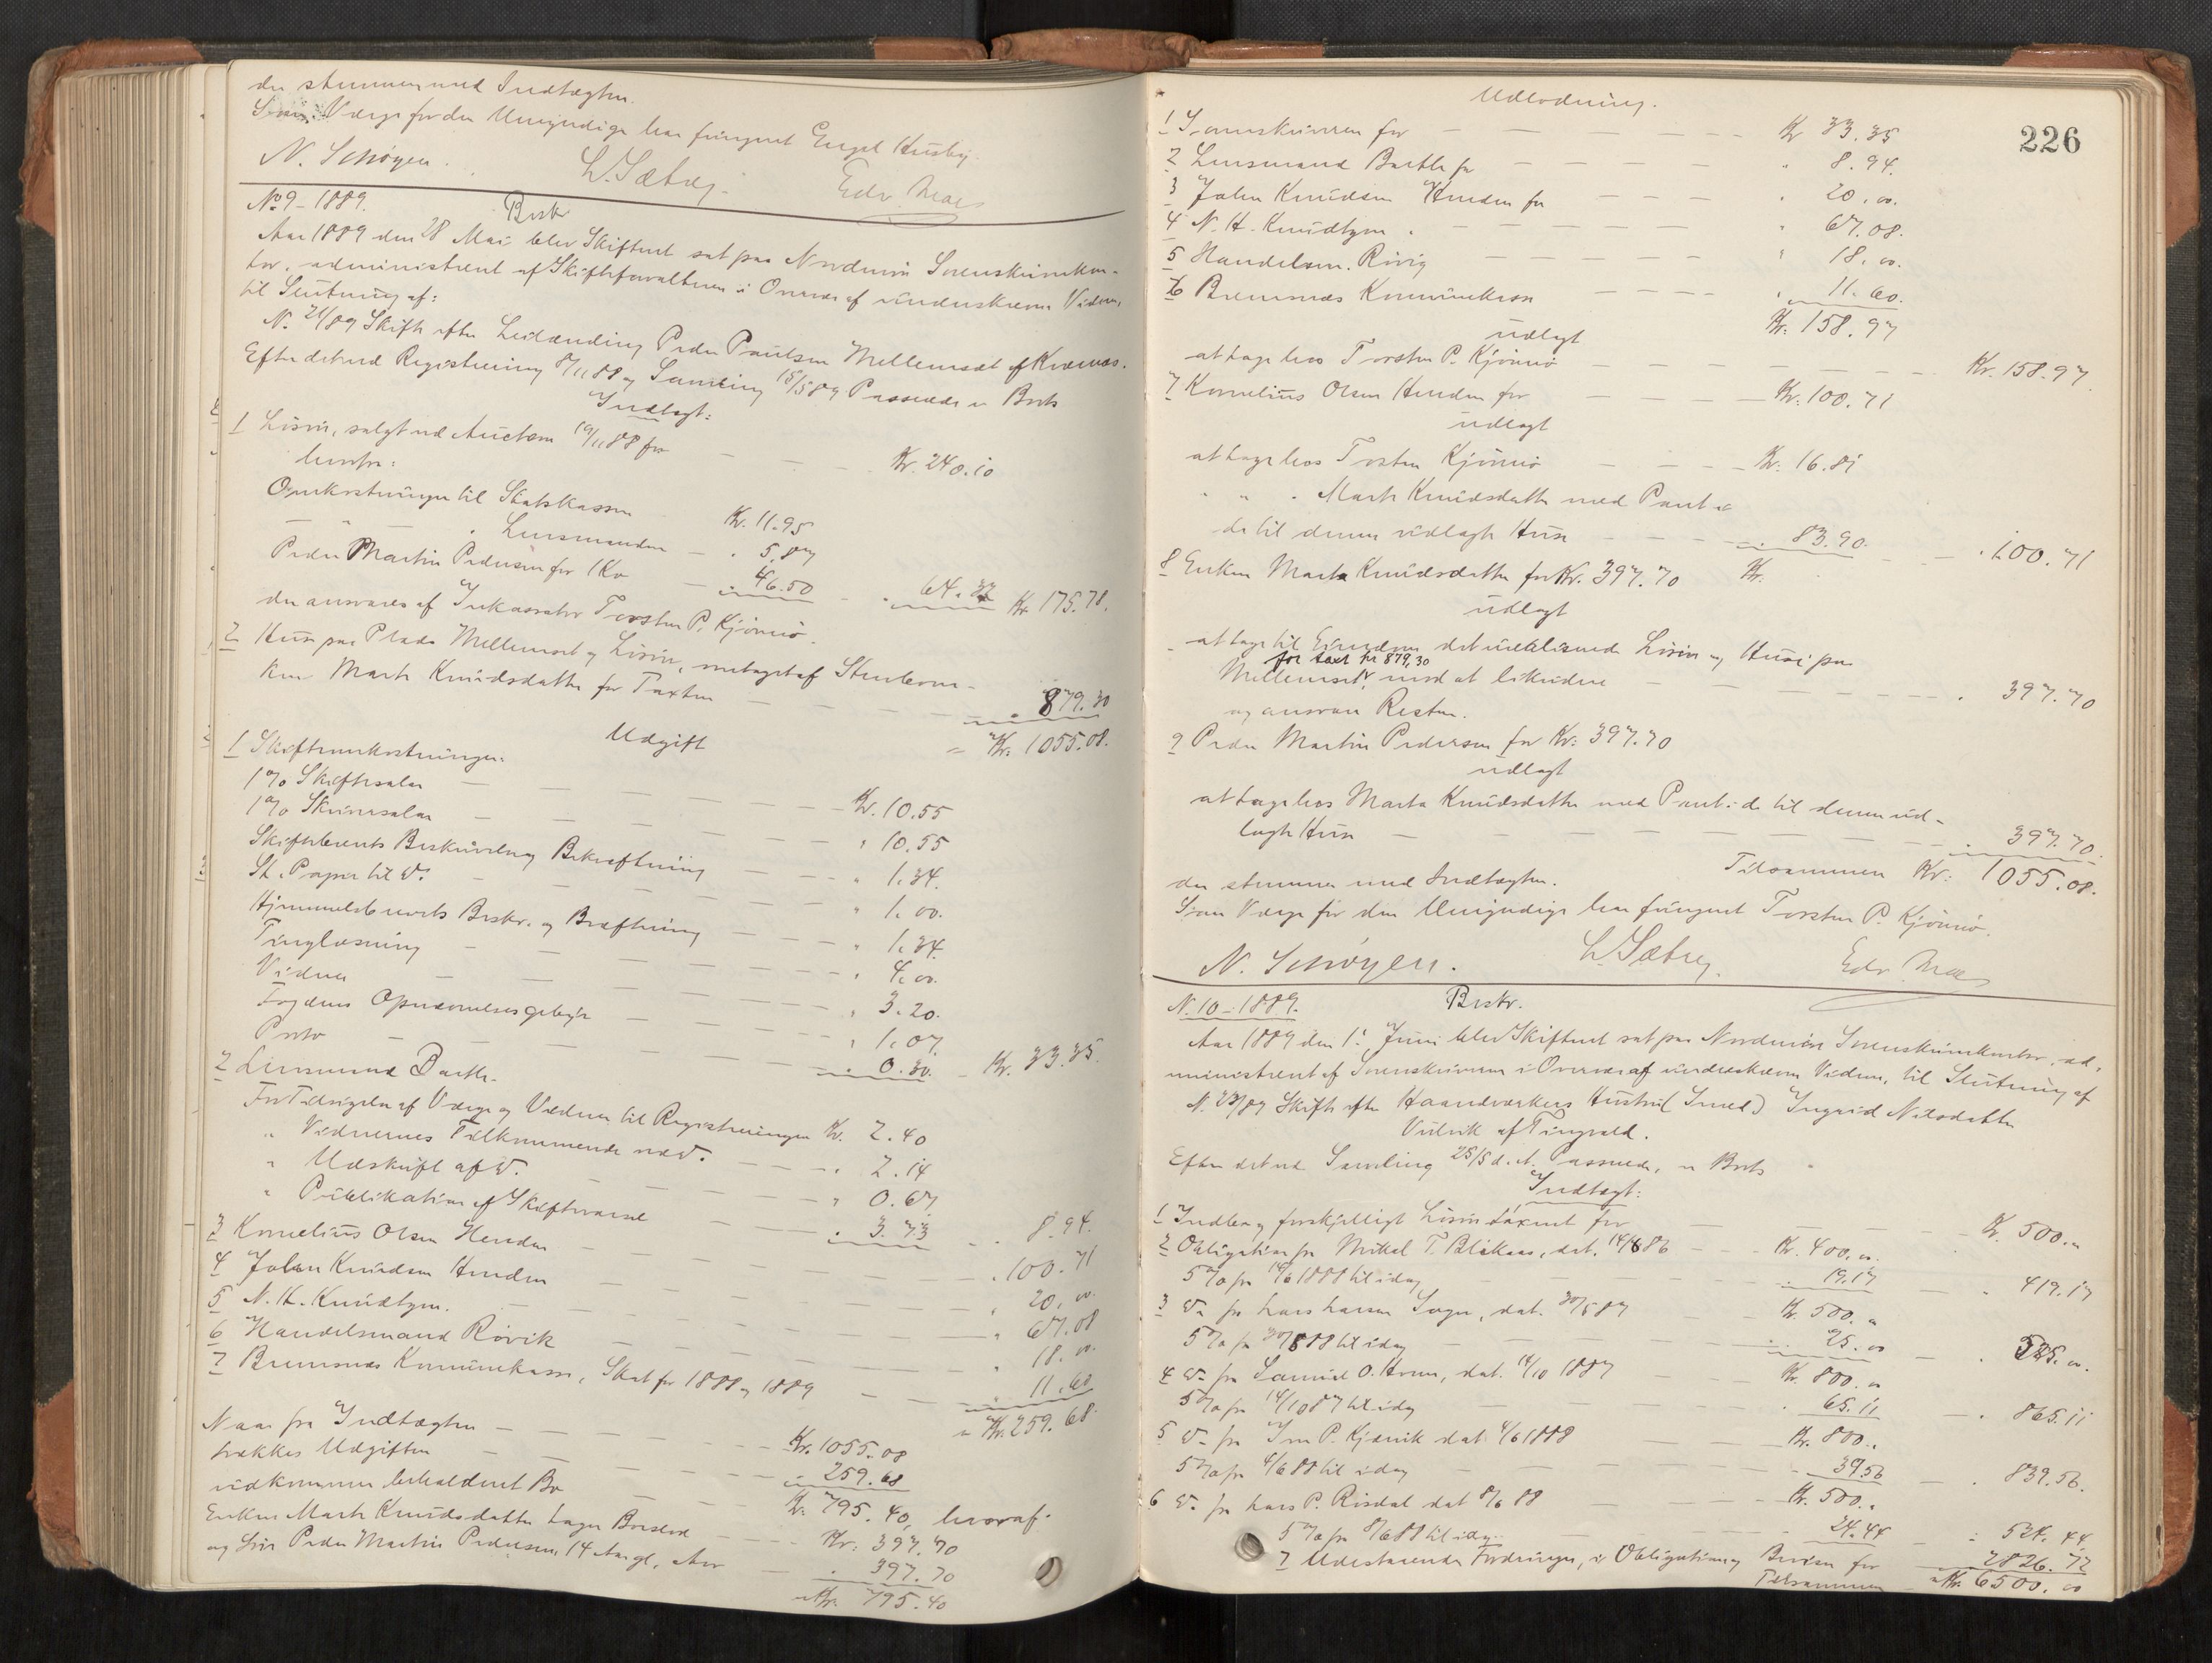 der stemmer med Indtægten.
Som Værge for den Umyndige har fungeret Engel Husby.
N. Schøyen. L. Sætrej. Edv. Moe
No 9 - 1889. Beskr
Aar 1889 den 28 Mai blev Skifteret sat paa Nordmør Sorenskriverkon-
tor, administreret af Skifteforvalteren i Overvær af underskrevne Vidner,
til Slutning af:
N. 21/89 Skifte efter Leilænding Peder Paulsen Mellemsæt af Kvernes.
Efter det ved Registrering 8/11 88 og Samling 15/5 89 Passerede er Boets
Indtægt:
1 Løsøre, solgt ved Auction 19/11 88 for — — Kr. 240.10
herfra:
Omkostninger til Statskassen Kr. 11.95
— " — " Lensmanden — " 5.87
Peder Martin Pedersen for 1 Ko — " 46.50 — " 64.32 Kr. 175.78.
der ansvares af Inkassator Torsten P. Kjønnø.
2 Huse paa Pladsen Mellemsæt og Løsøre, modtaget af Stervboen-
ken Marte Knudsdatter for Taxten — — — " 879.30
= Kr. 1055.08.
Udgift
1 Skifteomkostninger.
1% Skiftesalær — — — Kr. 10.55
1% Skriversalær — — — " 10.55
Skiftebrevets Beskrivelse og Bekræftning — — " 1.34.
St. Papir til do. — — — " 1.00.
Hjemmelsbrevets Beskr. og Bræftning — — " 1.34.
Tinglæsning — — — " 4.00.
Vidner — — — " 3.20.
Fogdens Opnævnelsesgebyr — — " 1.07.
Porto — — — " 0.30. — Kr. 33.35.
2 Lensmand Barth.
For Tilsigelse af Værge og Vidner til Registreringen Kr. 2.40
" Vidnernes Tilkommende ved do. — — " 2.14
" Udskrift af do. — — " 0.67
" Publikation af Skiftevarsel — — " 3.73 — " 8.94.
3 Kornelius Olsen Henden — — — " 100.71
4 Johan Knudsen Henden — — — " 20.00.
5 N. H. Knudtzon. — — — " 67.08
6 Handelsmand Røvik — — — " 18.00.
7 Bremsnes Kommunekasse, Skat for 1888 og 1889 — — " 11.60
= Kr. 259.68.
Naar fra Indtægten — — Kr. 1055.08
trækkes Udgiften — — " 259.68
udkommer beholdent Bo — — Kr. 795.40, hvoraf.
Enken Marte Knudsdatter tager Boslod — Kr: 397.70
og Søn Peder Martin Pedersen, 14 Aar gl., Arv — " 397.70
= Kr. 795.40
226
Udlodning.
1 Sorenskriveren for — — — Kr 33.35
2 Lensmand Barth for — — — " 8.94.
3 Johan Knudsen Henden for — — " 20.00.
4 N. H. Knudtzon " — — — " 67.08.
5 Handelsm. Røvig — — — " 18.00.
6 Bremsnes Kommunekasse — — " 11.60.
Kr. 158.97
udlagt
at tage hos Torsten P. Kjønnø — — — Kr. 158.97.
7 Kornelius Olsen Henden for — — Kr: 100.71
udlagt
at tage hos Torsten Kjønnø — — Kr: 16.81
" " " Marte Knudsdatter med Pant i
de til denne udlagte Huse — — " 83.90. — " 100.71
8 Enken Marta Knudsdatter for Kr. 397.70 Kr.
udlagt
at tage til Eiendom det ureliserede Løsøre og Huse paa
for taxt kr 879,30
Mellemsæt, mod at likvidere — — — " 397.70
og ansvare Resten.
9 Peder Martin Pedersen for Kr: 397.70
udlagt
at tage hos Marta Knudsdatter med Pant i de til denne ud-
lagte Huse — — — " 397.70.
Tilsammen Kr: 1055.08.
der stemmer med Indtægten.
Som Værge for den Umyndige har fungeret Torsten P. Kjønnø.
N. Schøyen. L. Sætrej. Edv. Moe
N. 10 - 1889. Beskr.
Aar 1889 den 1. Juni blev Skifteret sat paa Nordmøre Sorenskriverkontor, ad-
ministreret af Sorenskriveren i Overvær af underskrevne Vidner, til Slutning af
N. 23/89 Skifte efter Haandværkers Hustru (Smed) Ingrid Nilsdatter
Vulvik af Tingvold.
Efter det ved Samling 25/5 d. A. Passerede, er Boets
Indtægt:
1 Indbo og forskjelligt Løsøre taxeret for — — — Kr. 500. "
2 Obligation fra Mikal T. Blekaas, dat. 14/6 86 — — Kr. 400.00.
5% fra 14/6 1888 til idag — — " 19.17 — " 419.17
3 do. fra Lars Larsen Sogn, dat. 30/5 87 — Kr. 500. "
5% fra 30/5 88 til idag — — " 25.00 — " 525.00.
4 do. fra Samuel O. Horn, dat. 14/10 1887 — Kr. 800. "
5% fra 14/10 87 til idag — — " 65.11 — " 865.11
5 do. fra Iver P. Kjørvik dat. 4/6 1888 — Kr. 800. "
5% fra 4/6 88 til idag — — " 39.56 — " 839.56.
6 do. fra Lars P. Risdal dat 8/6 88 — Kr. 500. "
5% fra 8/6 88 til idag — — 24.44 — " 524.44
7 Udestaaende Fordringer, i Obligation og Beviser for — 2826.72
Tilsammen = Kr. 6500.00